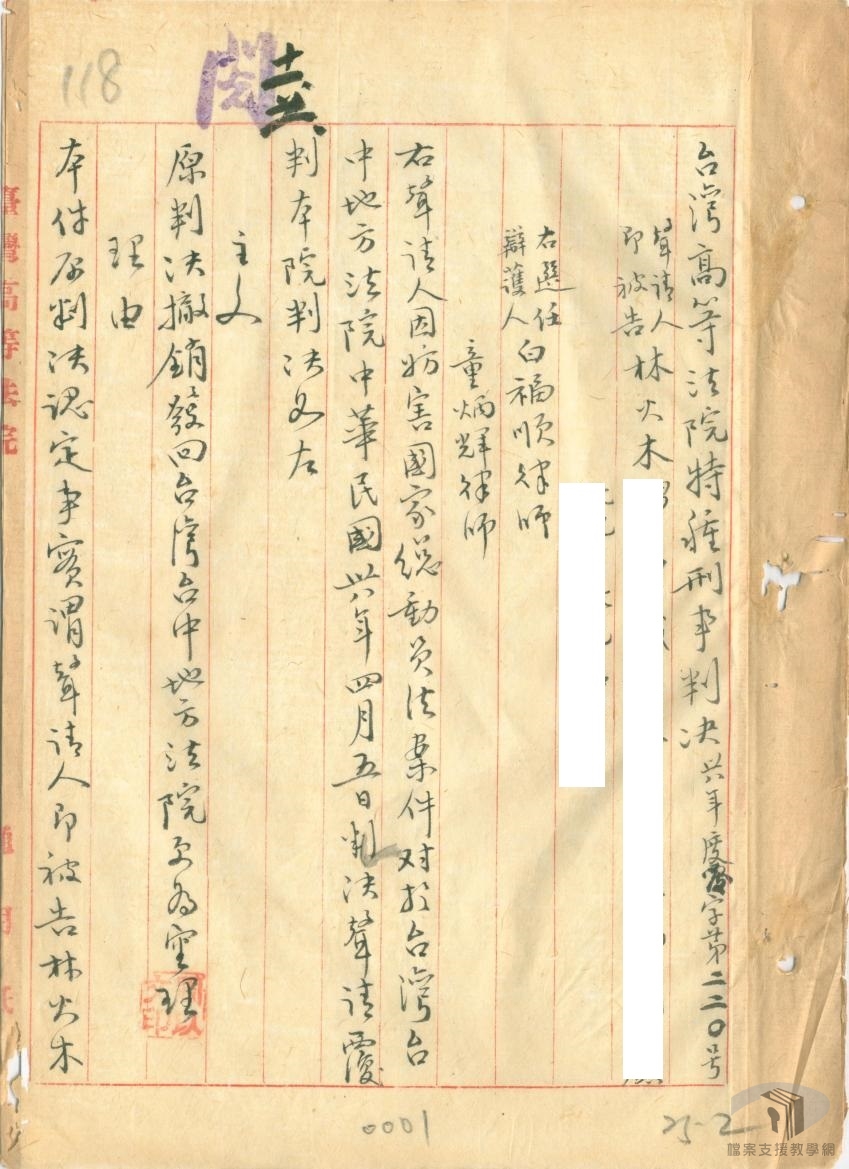 118
閱
台灣高等法院特種刑事判决 卅六年度 字第二二〇号
聲請人
即被告 林火木
右選任
辯護人 白福順律師
童炳輝律師
右聲請人因妨害國家総動員法案件对於台灣台
中地方法院中華民國卅六年四月五日判决聲請覆
判本院判决如左
主文
原判决撤銷發回台灣台中地方法院更為审理
理由
本件原判决認定事實謂聲請人即被告林火木
臺灣高等法院
0001
25-2
檔案支援教學網